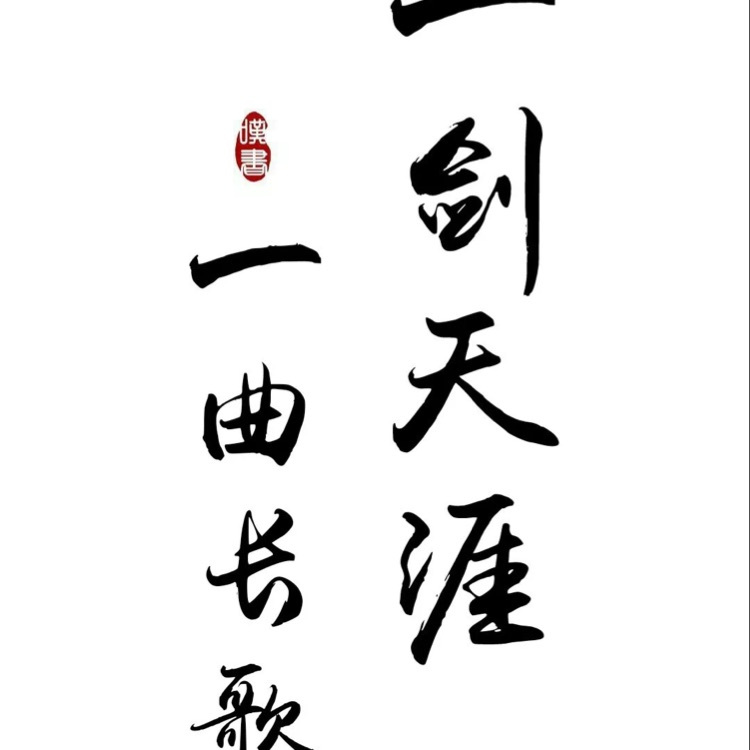 一剑天涯
一曲长歌
嘆書